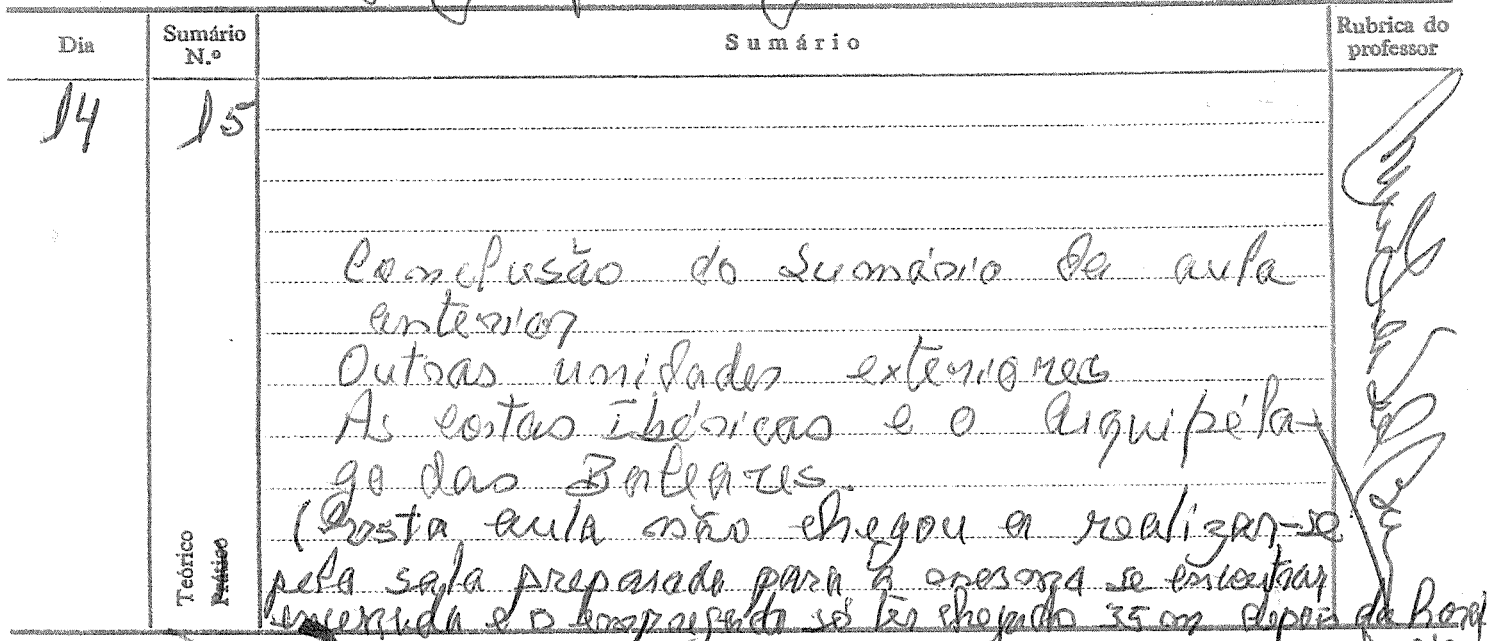 Dia
Sumário N.º
Sumário
Rubrica do professor
14
15
Conclusão do Sumário da aula
anterior
Outras unidades exteriores
As costas Ibéricas e o arquipéla-
go das Baleares.
(Esta aula não chegou a realizar-se
pela sala preparada para a mesma se encontrar
encerrada e o empregado só ter chegado 35 m depois da hora
Teórico
Prático